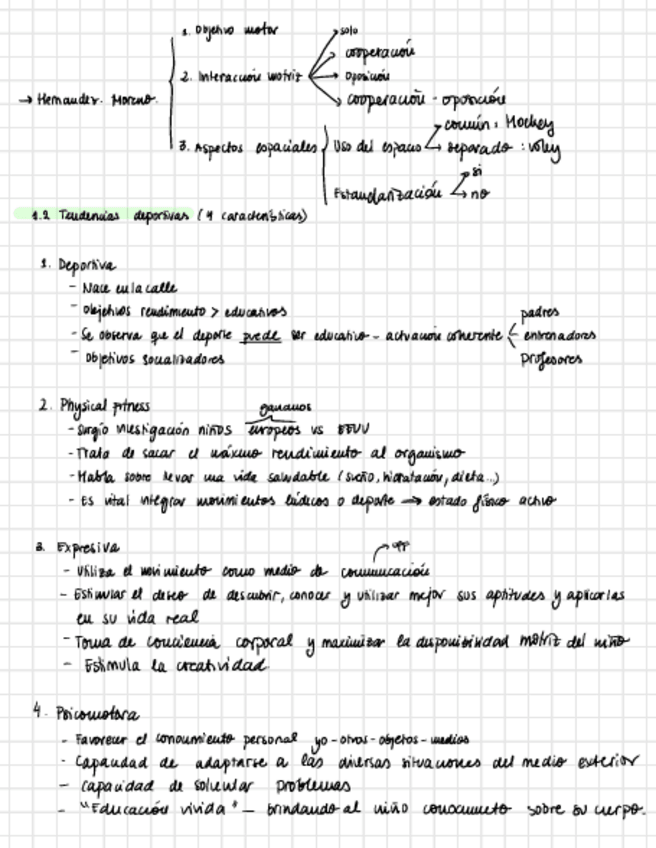 1. Objetivo motor
solo
cooperación
2. Interacción motriz
oposición
→ Hernández Moreno.
cooperación - oposición
común : Hockey
3. Aspectos espaciales
Uso del espacio
separado : voley
sí
Estandarización
no
1.2 Tendencias deportivas (4 características)
1. Deportiva
- Nace en la calle
- Objetivos rendimiento > educativos
padres
- Se observa que el deporte puede ser educativo - actuación coherente
entrenadores
- Objetivos socializadores
profesores
2. Physical fitness
ganamos
- Surgió investigación niños europeos vs EEUU
- Trata de sacar el máximo rendimiento al organismo
- Habla sobre llevar una vida saludable (sueño, hidratación, dieta...)
- Es vital integrar movimientos lúdicos o deporte → estado físico activo
3. Expresiva
- Utiliza el movimiento como medio de comunicación
- Estimular el deseo de descubrir, conocer y utilizar mejor sus aptitudes y aplicarlas
en su vida real
- Toma de conciencia corporal y maximizar la disponibilidad motriz del niño
- Estimula la creatividad
4. Psicomotora
- Favorecer el conocimiento personal yo - otros - objetos - medios
- Capacidad de adaptarse a las diversas situaciones del medio exterior
- capacidad de solventar problemas
- "Educación vivida" - brindando al niño conocimiento sobre su cuerpo.